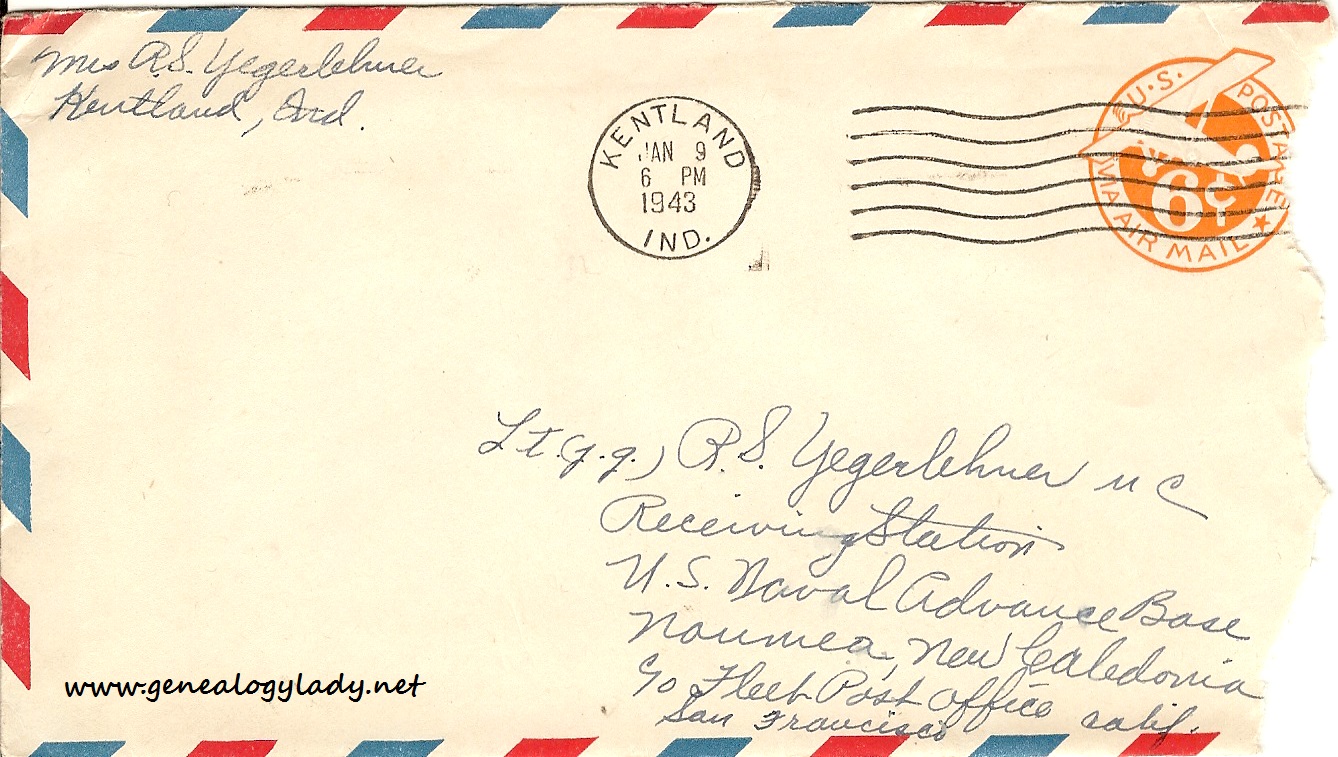 Mrs R.S. Yegerlehner
Kentland, Ind.
KENTLAND
JAN 9
6 PM
1943
IND.
U.S. POSTAGE
6¢
VIA AIR MAIL
Lt. (j.g.) R.S. Yegerlehner MC
Receiving Station
U.S. Naval Advance Base
Noumea, New Caledonia
c/o Fleet Post Office
San Francisco Calif.
www.genealogylady.net